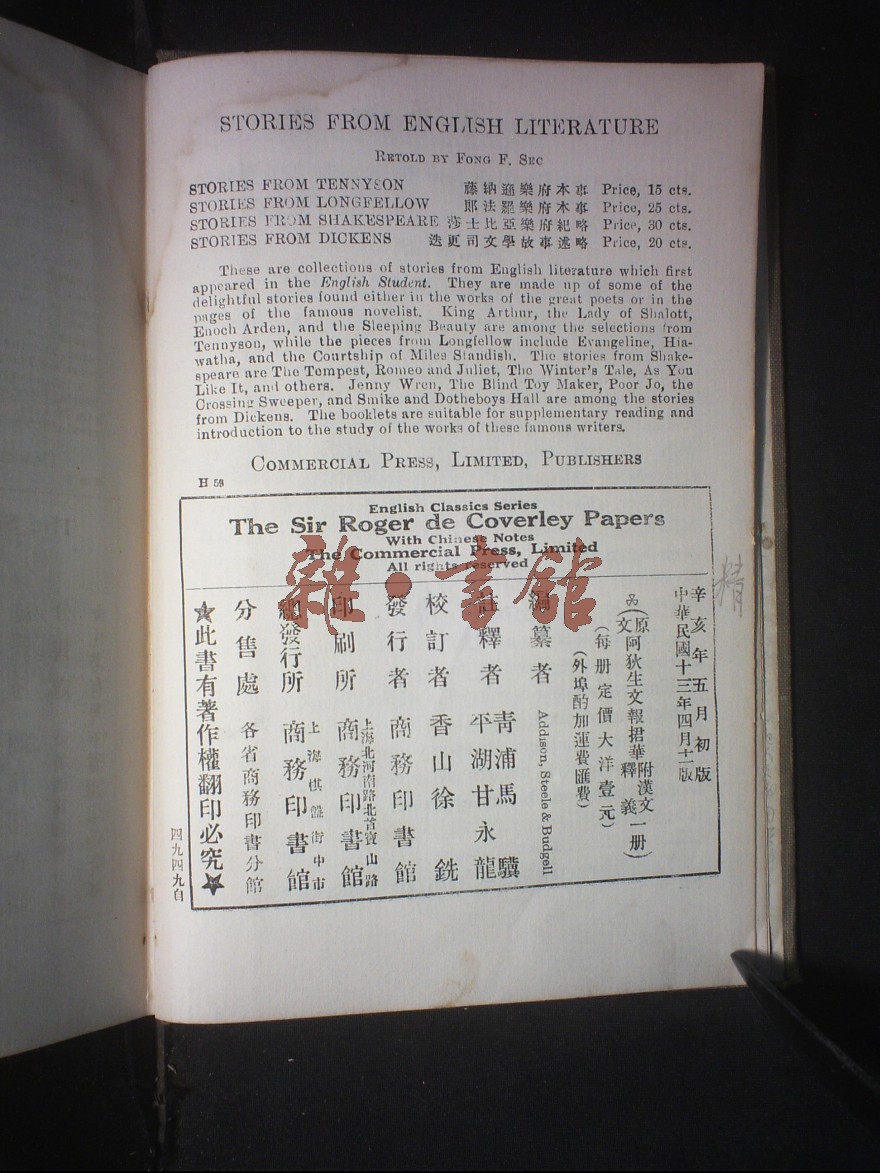 STORIES FROM ENGLISH LITERATURE
RETOLD BY FONG F. SEC
STORIES FROM TENNYSON 藤納遜樂府本事 Price, 15 cts.
STORIES FROM LONGFELLOW 郎法羅樂府本事 Price, 25 cts.
STORIES FROM SHAKESPEARE 莎士比亞樂府紀略 Price, 30 cts.
STORIES FROM DICKENS 迭更司文學故事述略 Price, 20 cts.
These are collections of stories from English literature which first
appeared in the English Student. They are made up of some of the
delightful stories found either in the works of the great poets or in the
pages of the famous novelist. King Arthur, the Lady of Shalott,
Enoch Arden, and the Sleeping Beauty are among the selections from
Tennyson, while the pieces from Longfellow include Evangeline, Hia-
watha, and the Courtship of Miles Standish. The stories from Shake-
speare are The Tempest, Romeo and Juliet, The Winter's Tale, As You
Like It, and others. Jenny Wren, The Blind Toy Maker, Poor Jo, the
Crossing Sweeper, and Smike and Dotheboys Hall are among the stories
from Dickens. The booklets are suitable for supplementary reading and
introduction to the study of the works of these famous writers.
COMMERCIAL PRESS, LIMITED, PUBLISHERS
H 59
English Classics Series
The Sir Roger de Coverley Papers
With Chinese Notes
The Commercial Press, Limited
All rights reserved
雜·書館
精
辛亥年五月初版
中華民國十三年四月十二版
(原文阿狄生文報捃華附漢文釋義一册)
(每册定價大洋壹元)
(外埠酌加運費匯費)
編纂者 Addison, Steele & Budgell
註釋者 青浦馬驥
平湖甘永龍
校訂者 香山徐銑
發行者 商務印書館
印刷所 上海北河南路北首寶山路
商務印書館
總發行所 上海棋盤街中市
商務印書館
分售處 各省商務印書分館
★此書有著作權翻印必究★
四九四九自